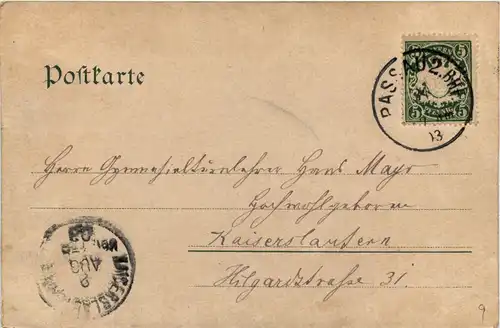 Postkarte
BAYERN
5 5
PFENNIG
PASSAU 2. BHF
03
Herrn Gymnasialturnlehrer Hans Mayr
Hochwohlgeboren
Kaiserslautern
Hilgardstraße 31.
KAISERSLAUTERN
2
AUG
03
9